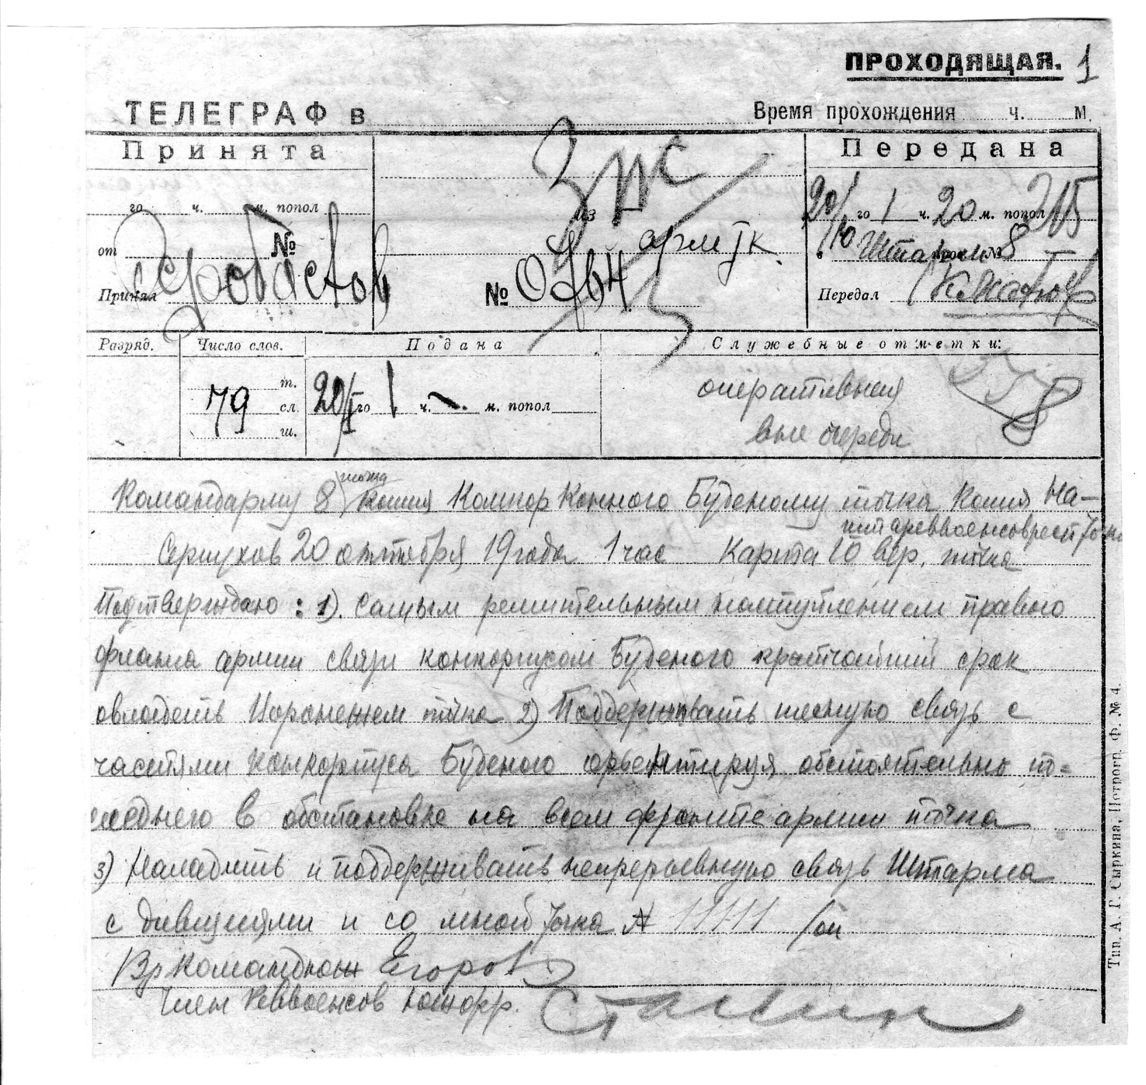 ПРОХОДЯЩАЯ. 1
ТЕЛЕГРАФ в
Время прохождения ч. м
Принята
Передана
го ч. м. попол
из
20/ го 1 ч. 20 м. попол
от №
армюж.
Штарм 8
Принял
№
Передал
Разряд. Число слов. Подана Служебные отметки:
79 т. сл. ш.
20/X го 1 ч. — м. попол
оперативная
вне очереди
Командарму 8 копия Комкор Конного Буденому точка Копия На-
Серпухов 20 октября 19 года 1 час Карта 10 вер. точка
Подтверждаю: 1). Самым решительным наступлением правого
фланга армии связи конкорпусом Буденого кратчайший срок
овладеть Воронежем точка 2) Поддерживать тесную связь с
частями конкорпуса Буденого орьентируя обстоятельно по=
следнего в обстановке на всем фронте армии точка
3) Наладить и поддерживать непрерывную связь Штарма
с дивизиями и со мной точка №
Вр Командюж Егоров
Член Реввоенсов южфр. Сталин
Тип. А. Г. Сыркина, Петрогр. Ф. № 4.